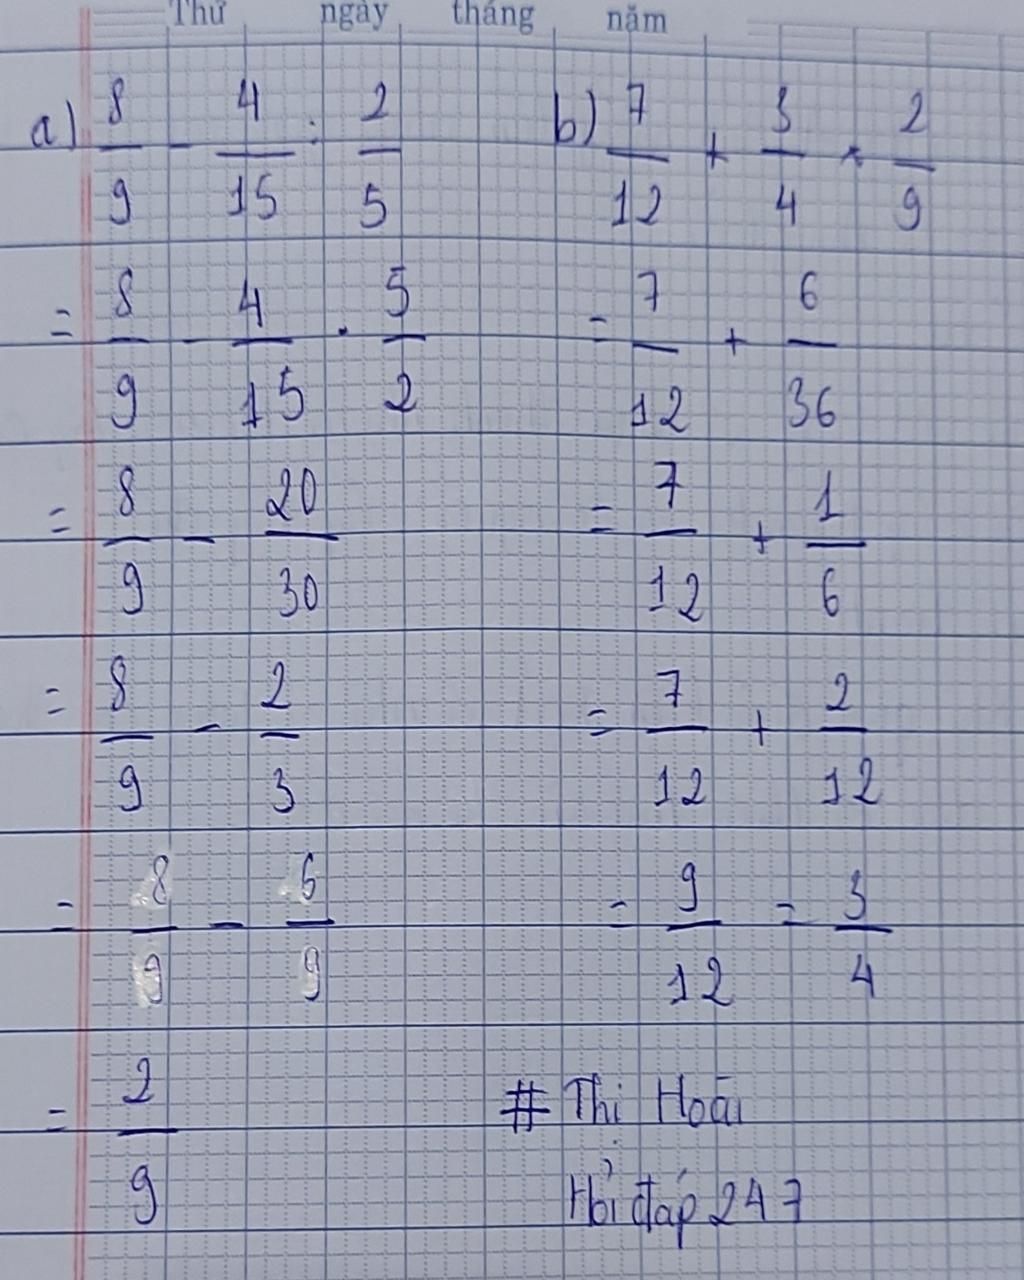 Thứ ngày tháng năm
a) 8/9 - 4/15 : 2/5
= 8/9 - 4/15 . 5/2
= 8/9 - 20/30
= 8/9 - 2/3
= 8/9 - 6/9
= 2/9
b) 7/12 + 3/4 × 2/9
= 7/12 + 6/36
= 7/12 + 1/6
= 7/12 + 2/12
= 9/12 = 3/4
# Thi Hoài
Hỏi đáp 247